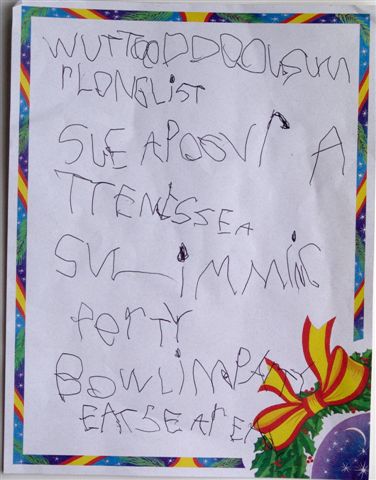 WUTTOODDOOUSUM
rLONGLIST
SLEAPOOVr A
TTENESSEA
SWimmiNG
PerTY
BOWLiNPARY
EATSEAREA